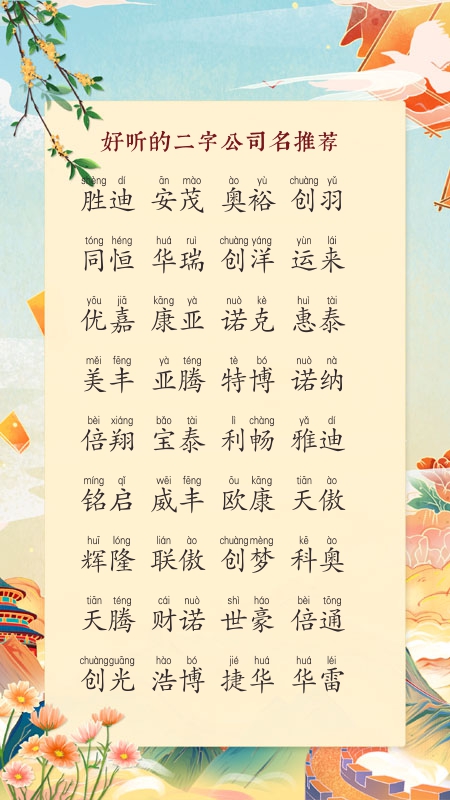 好听的二字公司名推荐
shèng dí ān mào ào yù chuàng yǔ
胜迪 安茂 奥裕 创羽
tóng héng huá ruì chuàng yáng yùn lái
同恒 华瑞 创洋 运来
yōu jiā kāng yà nuò kè huì tài
优嘉 康亚 诺克 惠泰
měi fēng yà téng tè bó nuò nà
美丰 亚腾 特博 诺纳
bèi xiáng bǎo tài lì chàng yǎ dí
倍翔 宝泰 利畅 雅迪
míng qǐ wēi fēng ōu kāng tiān ào
铭启 威丰 欧康 天傲
huī lóng lián ào chuàng mèng kē ào
辉隆 联傲 创梦 科奥
tiān téng cái nuò shì háo bèi tōng
天腾 财诺 世豪 倍通
chuàng guāng hào bó jié huá huá léi
创光 浩博 捷华 华雷